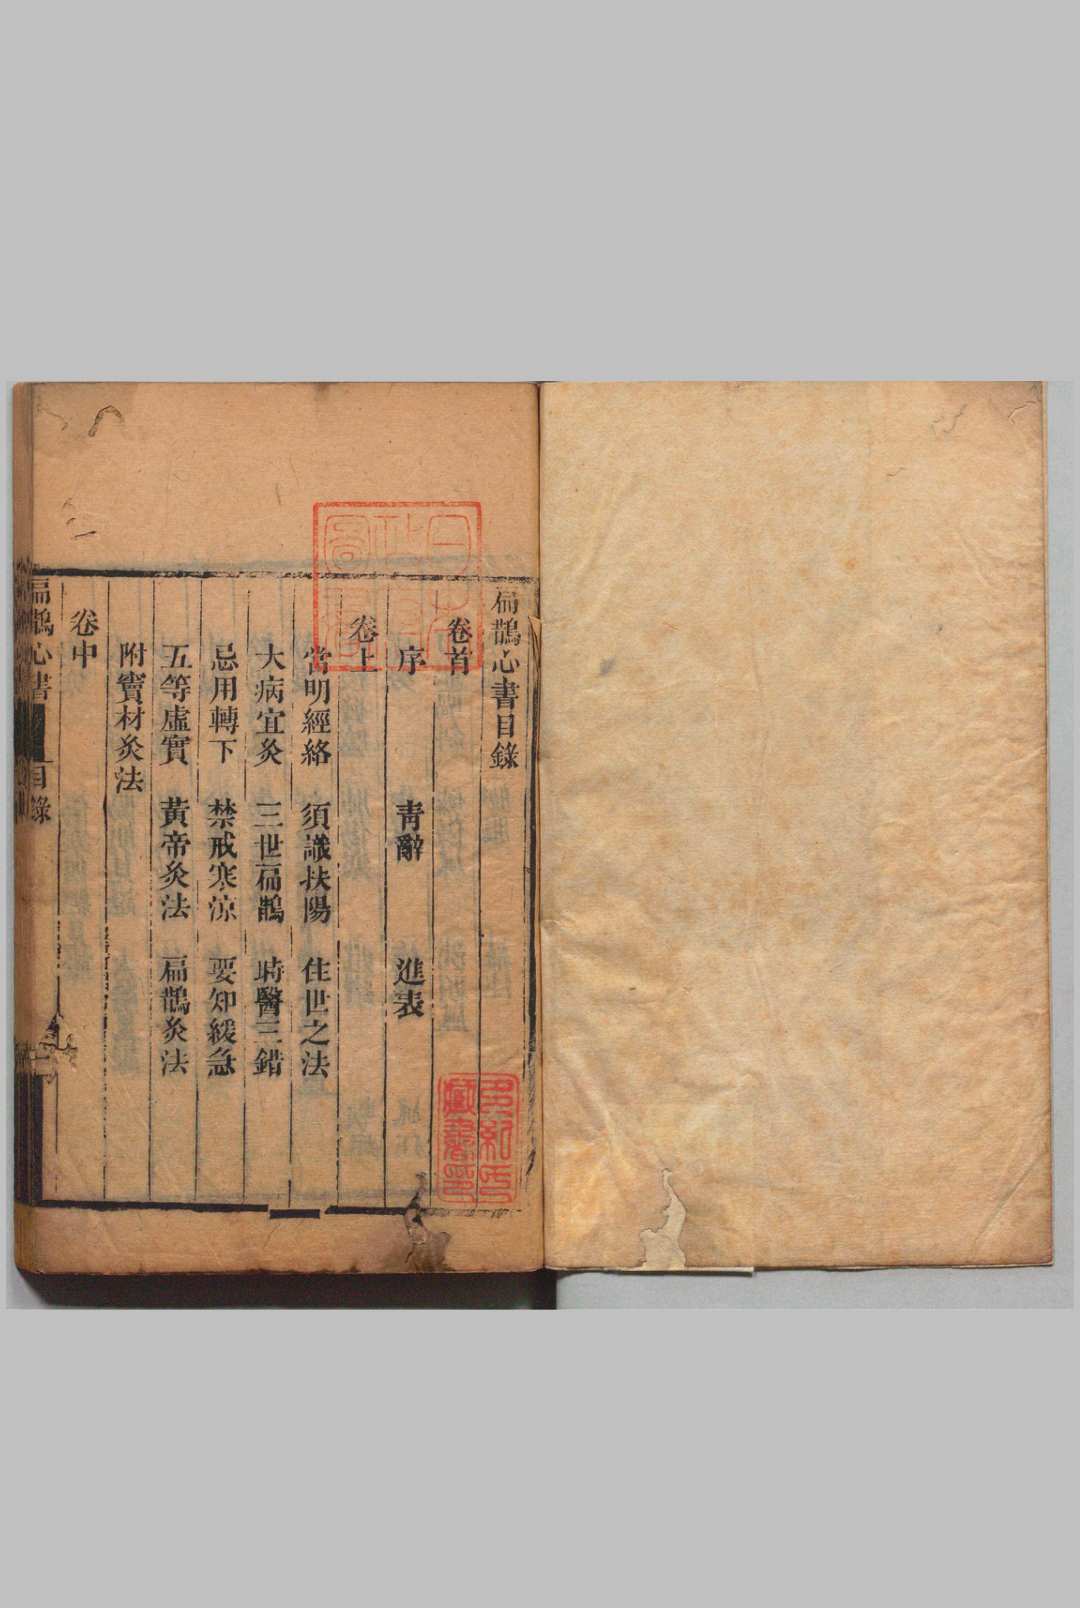 扁鵲心書目錄
卷首
序 青辭 進表
卷上
當明經絡 須識扶陽 住世之法
大病宜灸 三世扁鵲 時醫三錯
忌用轉下 禁戒寒涼 要知緩急
五等虛實 黃帝灸法 扁鵲灸法
附竇材灸法
卷中
扁鵲心書
目錄